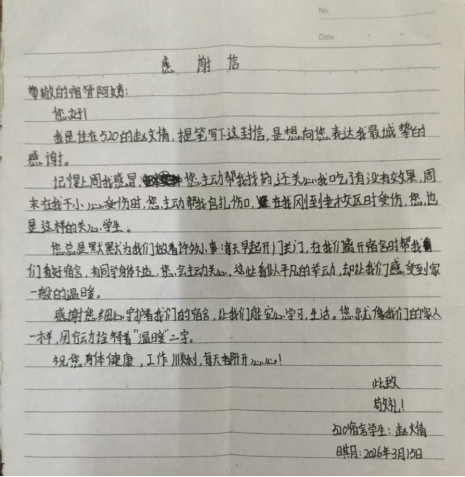 No.
Date
感谢信
尊敬的宿管阿姨:
您好!
我是住在520的赵文倩,提笔写下这封信,是想向您表达我最诚挚的
感谢。
记得上周我感冒,您主动帮我找药,还关心我吃了有没有效果,周
末在我不小心受伤时,您主动帮我包扎伤口,在我刚到老校区时受伤,您也
是这样的关心学生。
您总是默默为我们做着许多小事:每天早起开门关门,在我们离开宿舍时帮我
们看好宿舍,有同学身体不适,您会主动关心。这些看似平凡的举动,却让我们感受到家
一般的温暖。
感谢您细心守护着我们的宿舍,让我们能安心学习、生活。您就像我们的家人
一样,用行动诠释着“温暖”二字。
祝您身体健康,工作顺利,每天都开开心心!
此致
敬礼!
520宿舍学生:赵文倩
日期:2026年3月15日